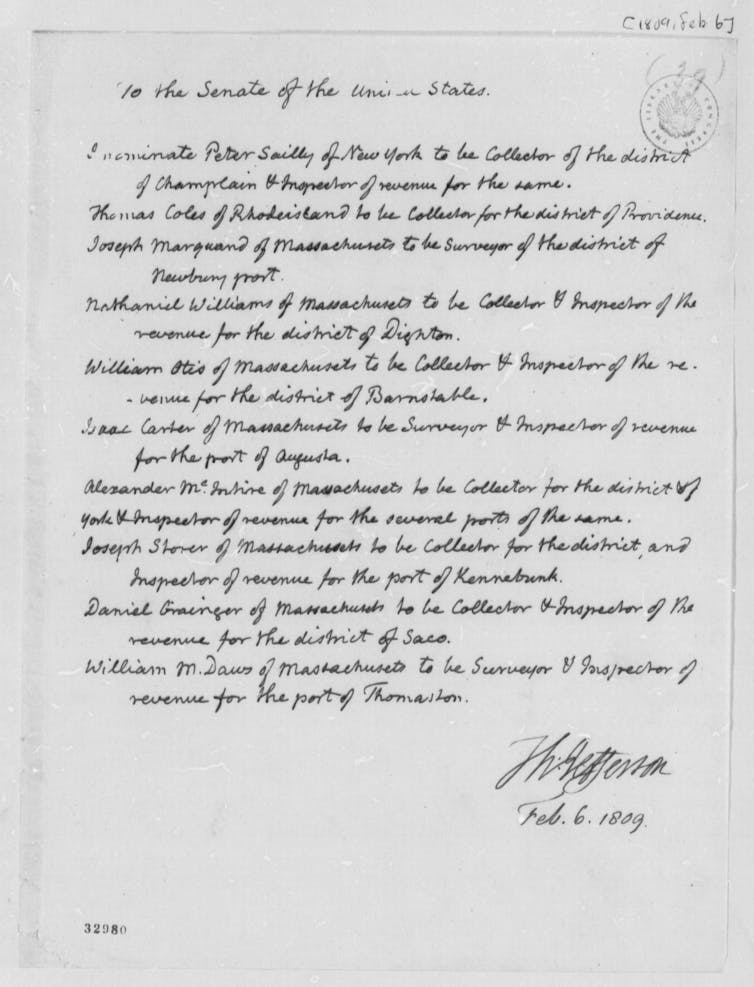 [1809, Feb 6]
To the Senate of the United States.
I nominate Peter Sailly of New York to be Collector of the district
of Champlain & Inspector of revenue for the same.
Thomas Coles of Rhodeisland to be Collector for the district of Providence.
Joseph Marquand of Massachusets to be Surveyor of the district of
Newbury port.
Nathaniel Williams of Massachusets to be Collector & Inspector of the
revenue for the district of Dighton.
William Otis of Massachusets to be Collector & Inspector of the re-
-venue for the district of Barnstable.
Isaac Carter of Massachusets to be Surveyor & Inspector of revenue
for the port of Augusta.
Alexander Mc.Intire of Massachusets to be Collector for the district of
York & Inspector of revenue for the several ports of the same.
Joseph Storer of Massachusets to be Collector for the district, and
Inspector of revenue for the port of Kennebunk.
Daniel Grainger of Massachusets to be Collector & Inspector of the
revenue for the district of Saco.
William M. Daws of Massachusets to be Surveyor & Inspector of
revenue for the port of Thomaston.
Th: Jefferson
Feb. 6. 1809.
32980